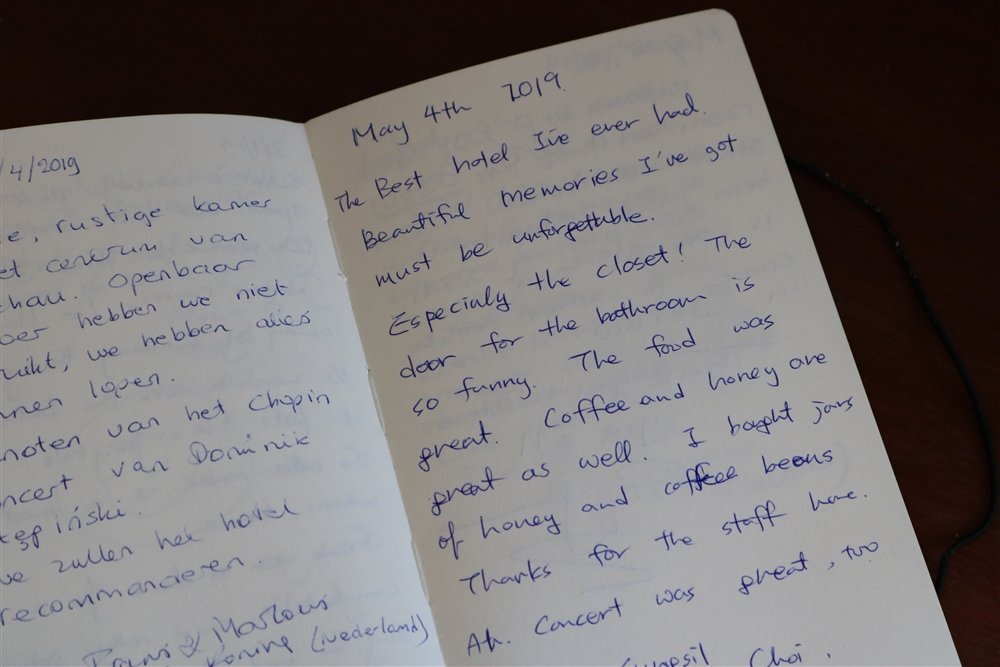 /4/2019
e, rustige kamer
et centrum van
chau. Openbaar
oer hebben we niet
uikt, we hebben alles
nnen lopen.
noten van het Chopin
ncert van Dominik
tępiński.
we zullen het hotel
recommanderen.
& Marlous
Koning (Nederland)
May 4th 2019.
The Best hotel I've ever had.
Beautiful memories I've got
must be unforgettable.
Especialy the closet! The
door for the bathroom is
so funny. The food was
great. Coffee and honey are
great as well. I bought jars
of honey and coffee beans
Thanks for the staff here.
Ah. Concert was great, too
Choi.